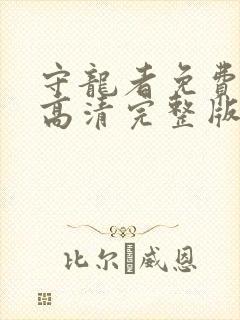 守龍者免費
高清完整版
比尔威恩